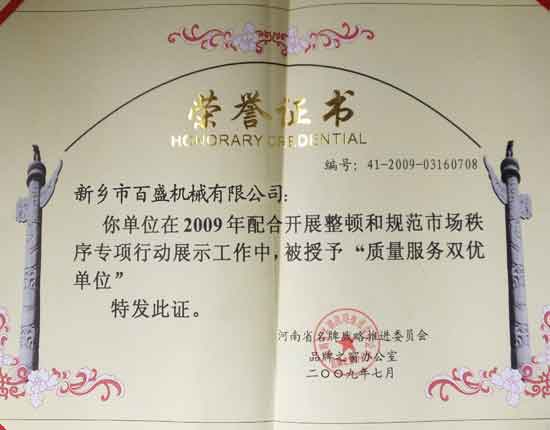 荣誉证书
HONORARY CREDENTIAL
编号：41-2009-03160708
新乡市百盛机械有限公司：
你单位在2009年配合开展整顿和规范市场秩
序专项行动展示工作中，被授予“质量服务双优
单位”
特发此证。
河南省名牌战略推进委员会
品牌之窗办公室
二〇〇九年七月